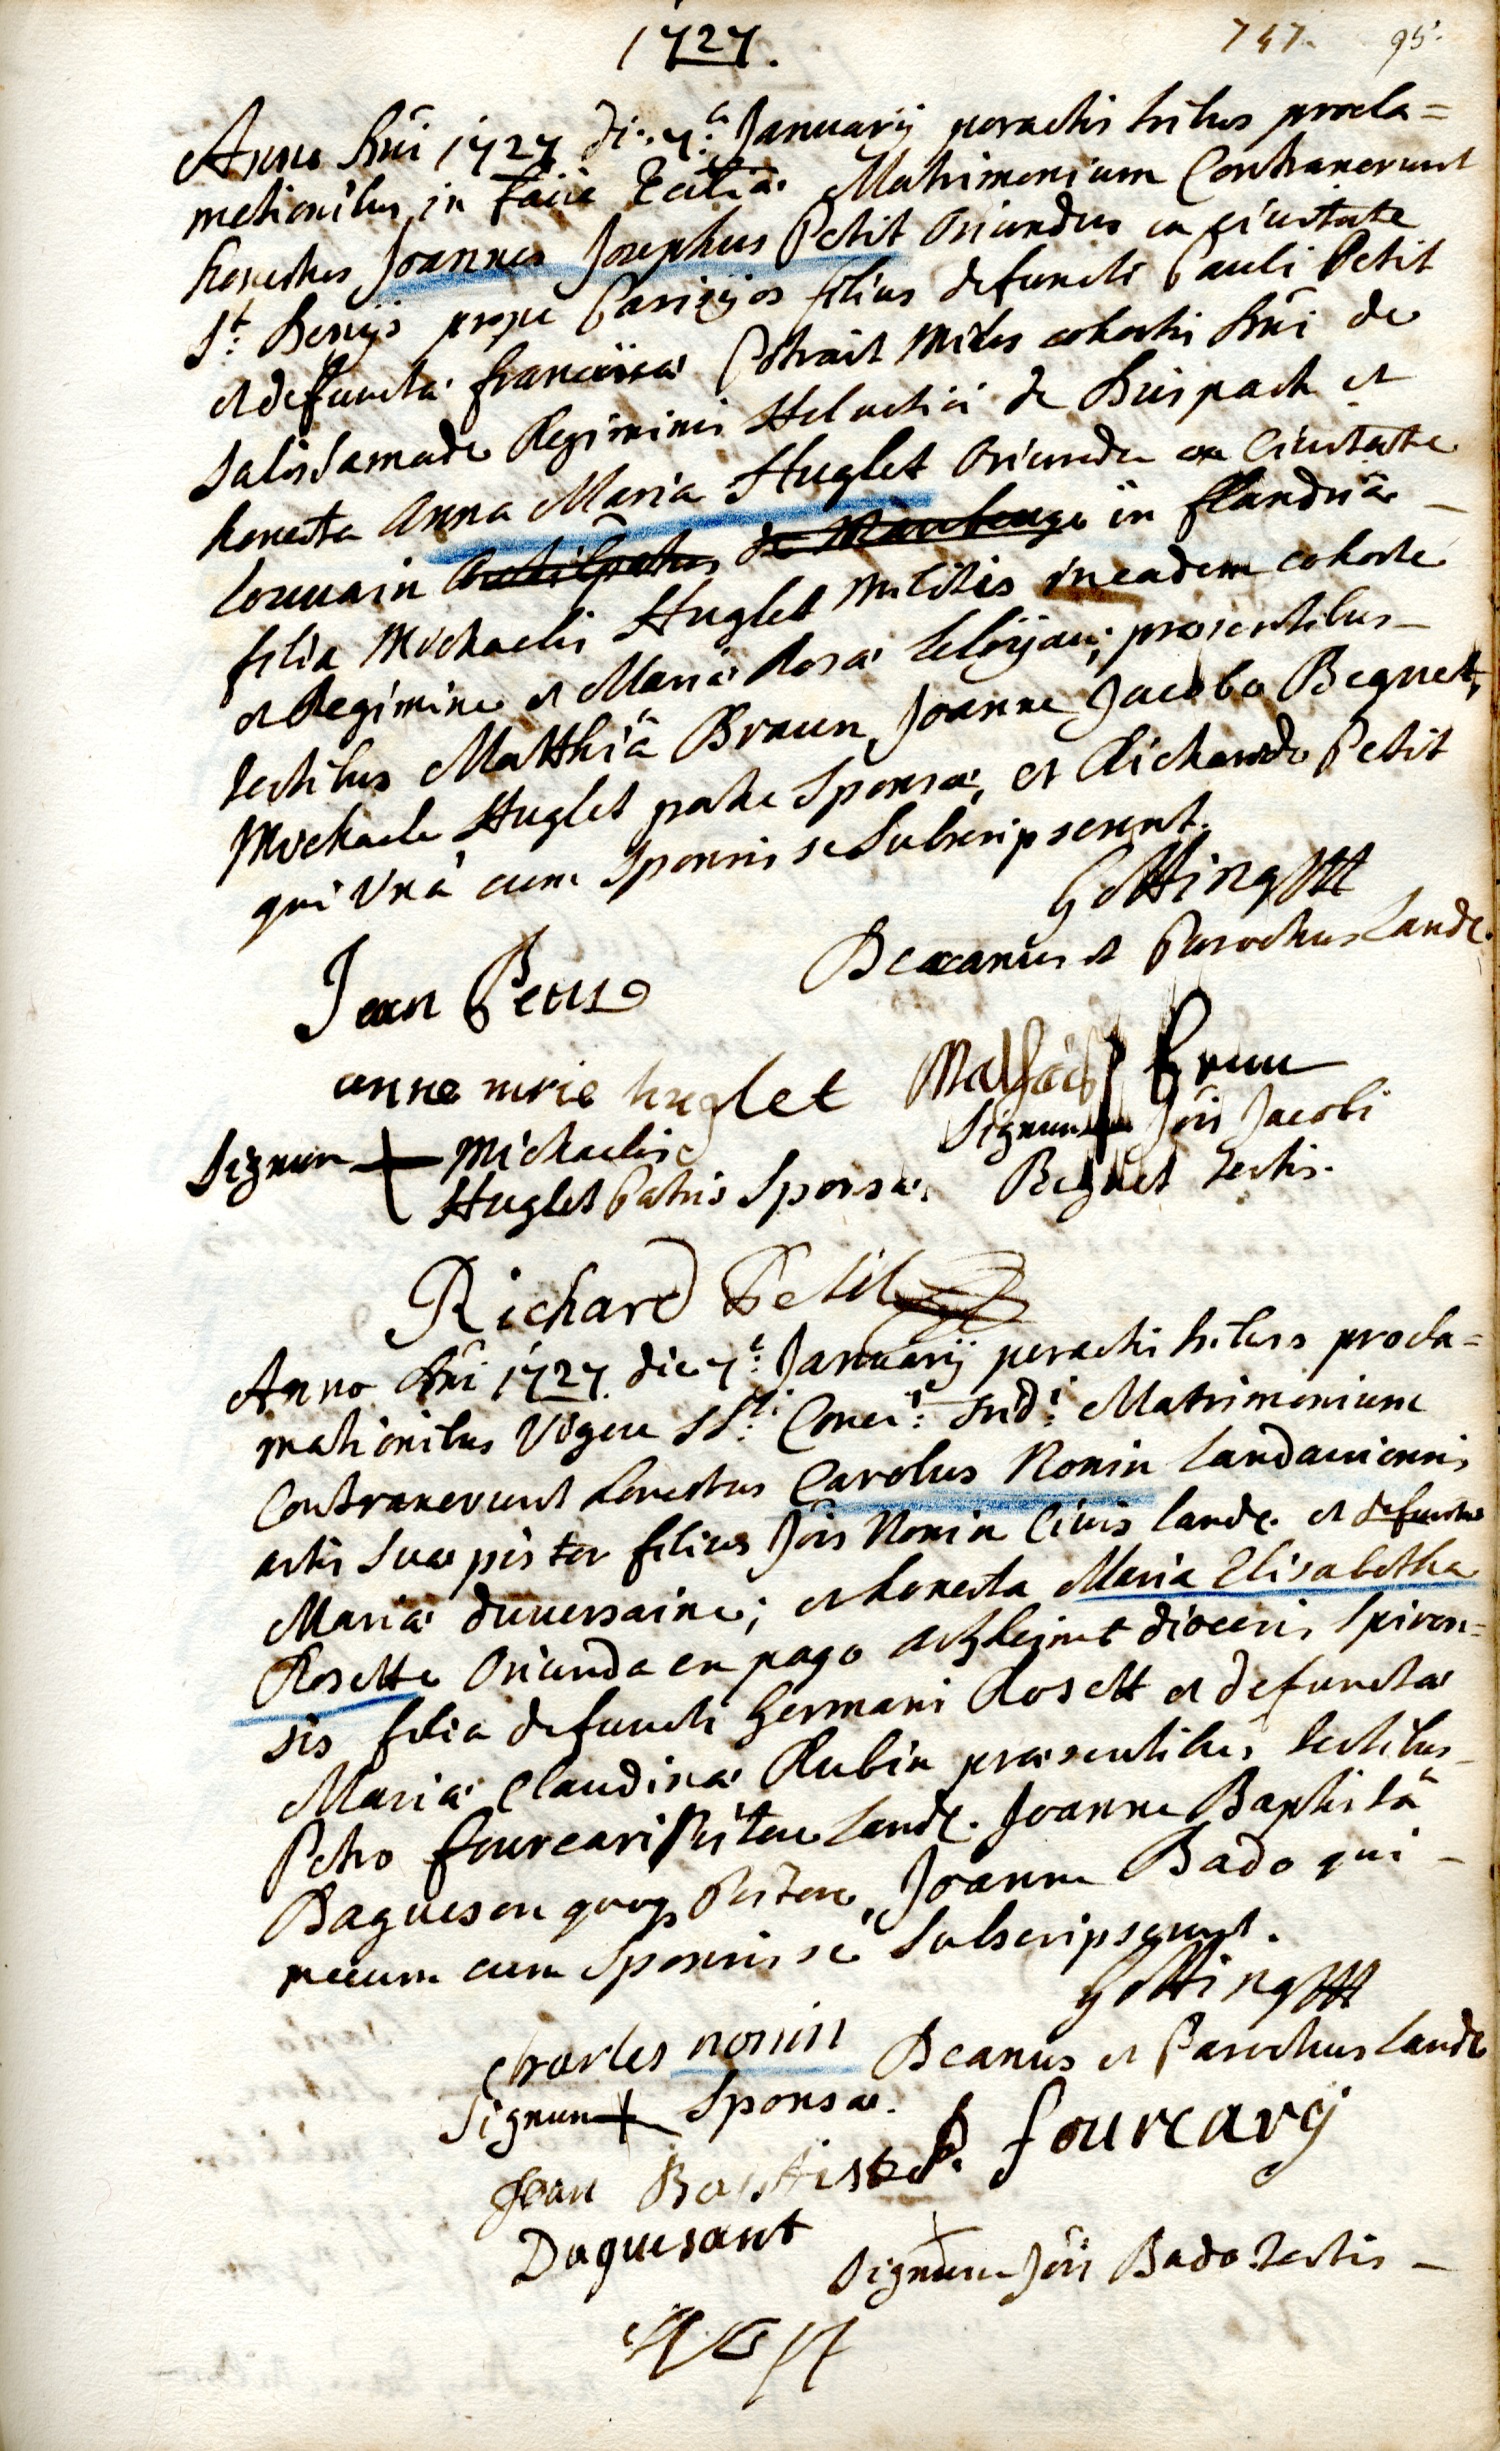 1727.
747. 95.
Anno Dni 1727 die 7a Januarij peractis tribus procla=
mationibus in facie Ecclia Matrimonium Contraxerunt
honestus Joannes Josephus Petit Oriundus ex civitate
St Denijs prope Parisijos filius defuncti Pauli Petit
et defuncta francisca Potrait Miles cohortis Dni de
Salis Samade Regiminis Helvetici de Buispach et
honesta Anna Maria Huglet Oriunda ex Civitate
Louvain de Maubeuge in flandria
filia Michaelis Huglet Militis in eadem cohorte
et Regimine et Maria Rosa ; præsentibus
testibus Matthia Braun, Joanne Jacobo Begnet,
Michaele Huglet patre Sponsæ, et Richardo Petit
qui Una cum Sponsis se Subscripserunt.
Gotting
Decanus et Parochus Land.
Jean Petit
anne mrie huglet
Mathias Brun
Signum + Michaelis
Huglet Patris Sponsæ.
Signum + Jois Jacobi
Begnet testis.
Richard Petit
Anno Dni 1727. die 7a: Januarij peractis tribus procla=
mationibus Vigore SSti Concij: Trid: Matrimonium
Contraxerunt honestus Carolus Nonin Landaviensis
artis suæ pistor filius Jois Nonin Civis Land. et defunctæ
Maria duversaine; et honesta Maria Elisabetha
Rosette Oriunda ex pago diocesis Spiren=
sis filia defuncti Germani Rosett et defuncta
Maria Claudina Rubin præsentibus testibus
Petro fourcari Pistore Land. Joanne Baptista
Daguesen quoq Pistore, Joanne Bado qui
mecum cum Sponsis se Subscripserunt.
Gotting
Decanus et Parochus Land.
charles nonin
Signum + Sponsæ.
P. fourcary
Jean Baptiste
Daguesant
Signum Jois Bado testis